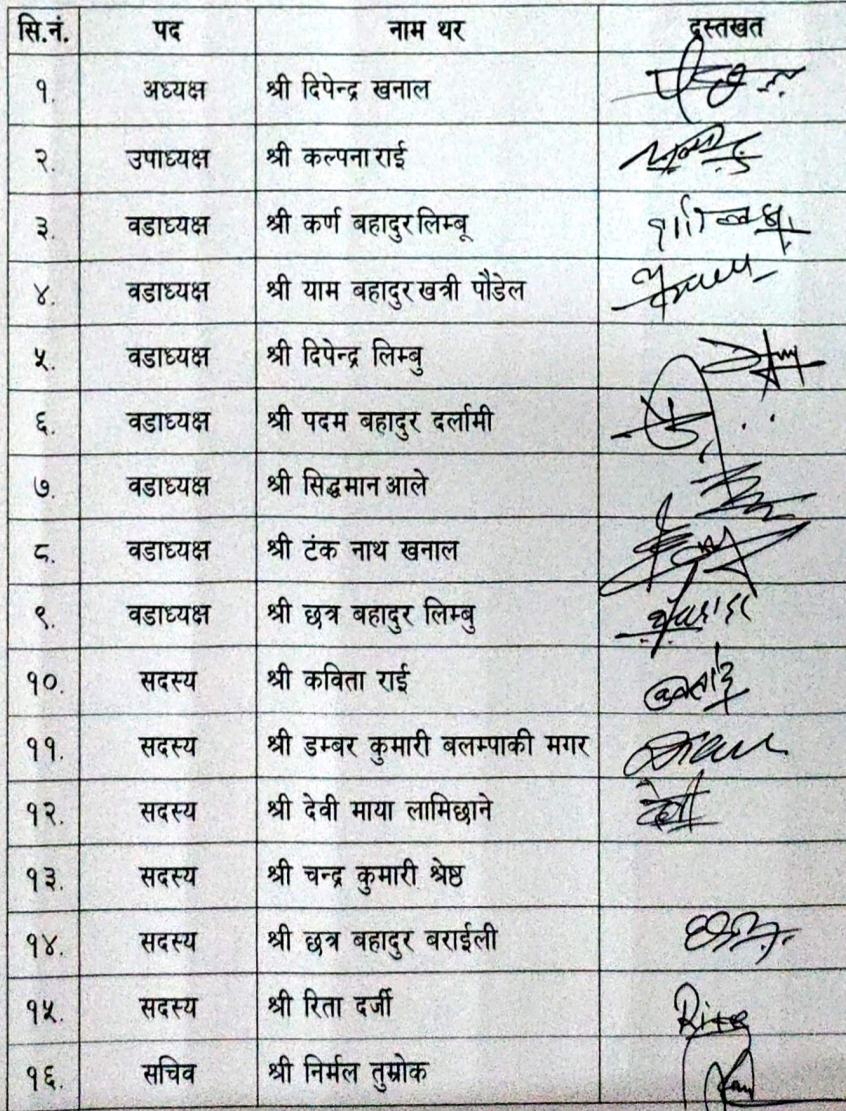 सि.नं. पद नाम थर दस्तखत
१. अध्यक्ष श्री दिपेन्द्र खनाल
२. उपाध्यक्ष श्री कल्पना राई
३. वडाध्यक्ष श्री कर्ण बहादुर लिम्बू
४. वडाध्यक्ष श्री याम बहादुर खत्री पौडेल
५. वडाध्यक्ष श्री दिपेन्द्र लिम्बु
६. वडाध्यक्ष श्री पदम बहादुर दर्लामी
७. वडाध्यक्ष श्री सिद्धमान आले
८. वडाध्यक्ष श्री टंक नाथ खनाल
९. वडाध्यक्ष श्री छत्र बहादुर लिम्बु
१०. सदस्य श्री कविता राई
११. सदस्य श्री डम्बर कुमारी बलम्पाकी मगर
१२. सदस्य श्री देवी माया लामिछाने
१३. सदस्य श्री चन्द्र कुमारी श्रेष्ठ
१४. सदस्य श्री छत्र बहादुर बराईली
१५. सदस्य श्री रिता दर्जी
१६. सचिव श्री निर्मल तुम्रोक